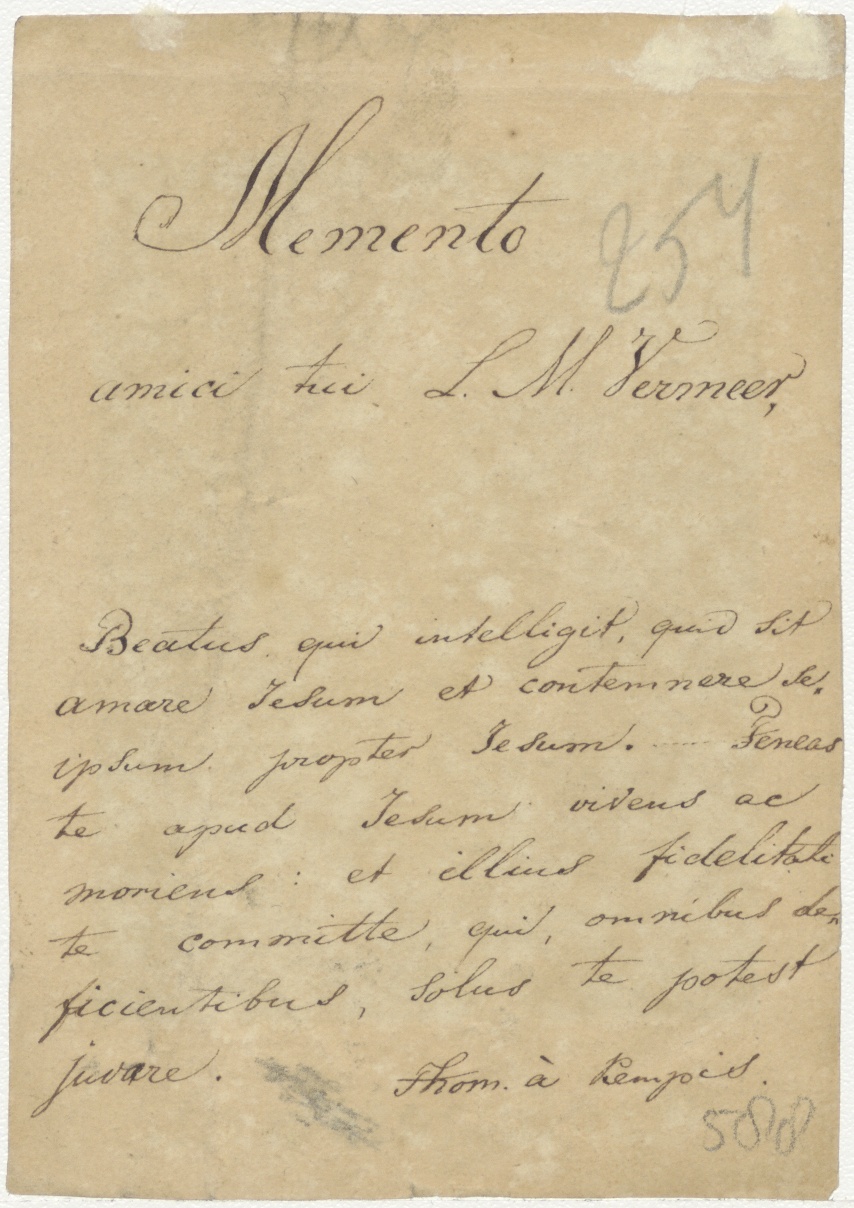 Memento
254
amici tui L. M. Vermeer,
Beatus, qui intelligit, quid sit
amare Iesum et contemnere se-
ipsum propter Iesum. — Teneas
te apud Iesum vivens ac
moriens : et illius fidelitati
te committe, qui, omnibus de-
ficientibus, solus te potest
juvare.
Thom. à Kempis.